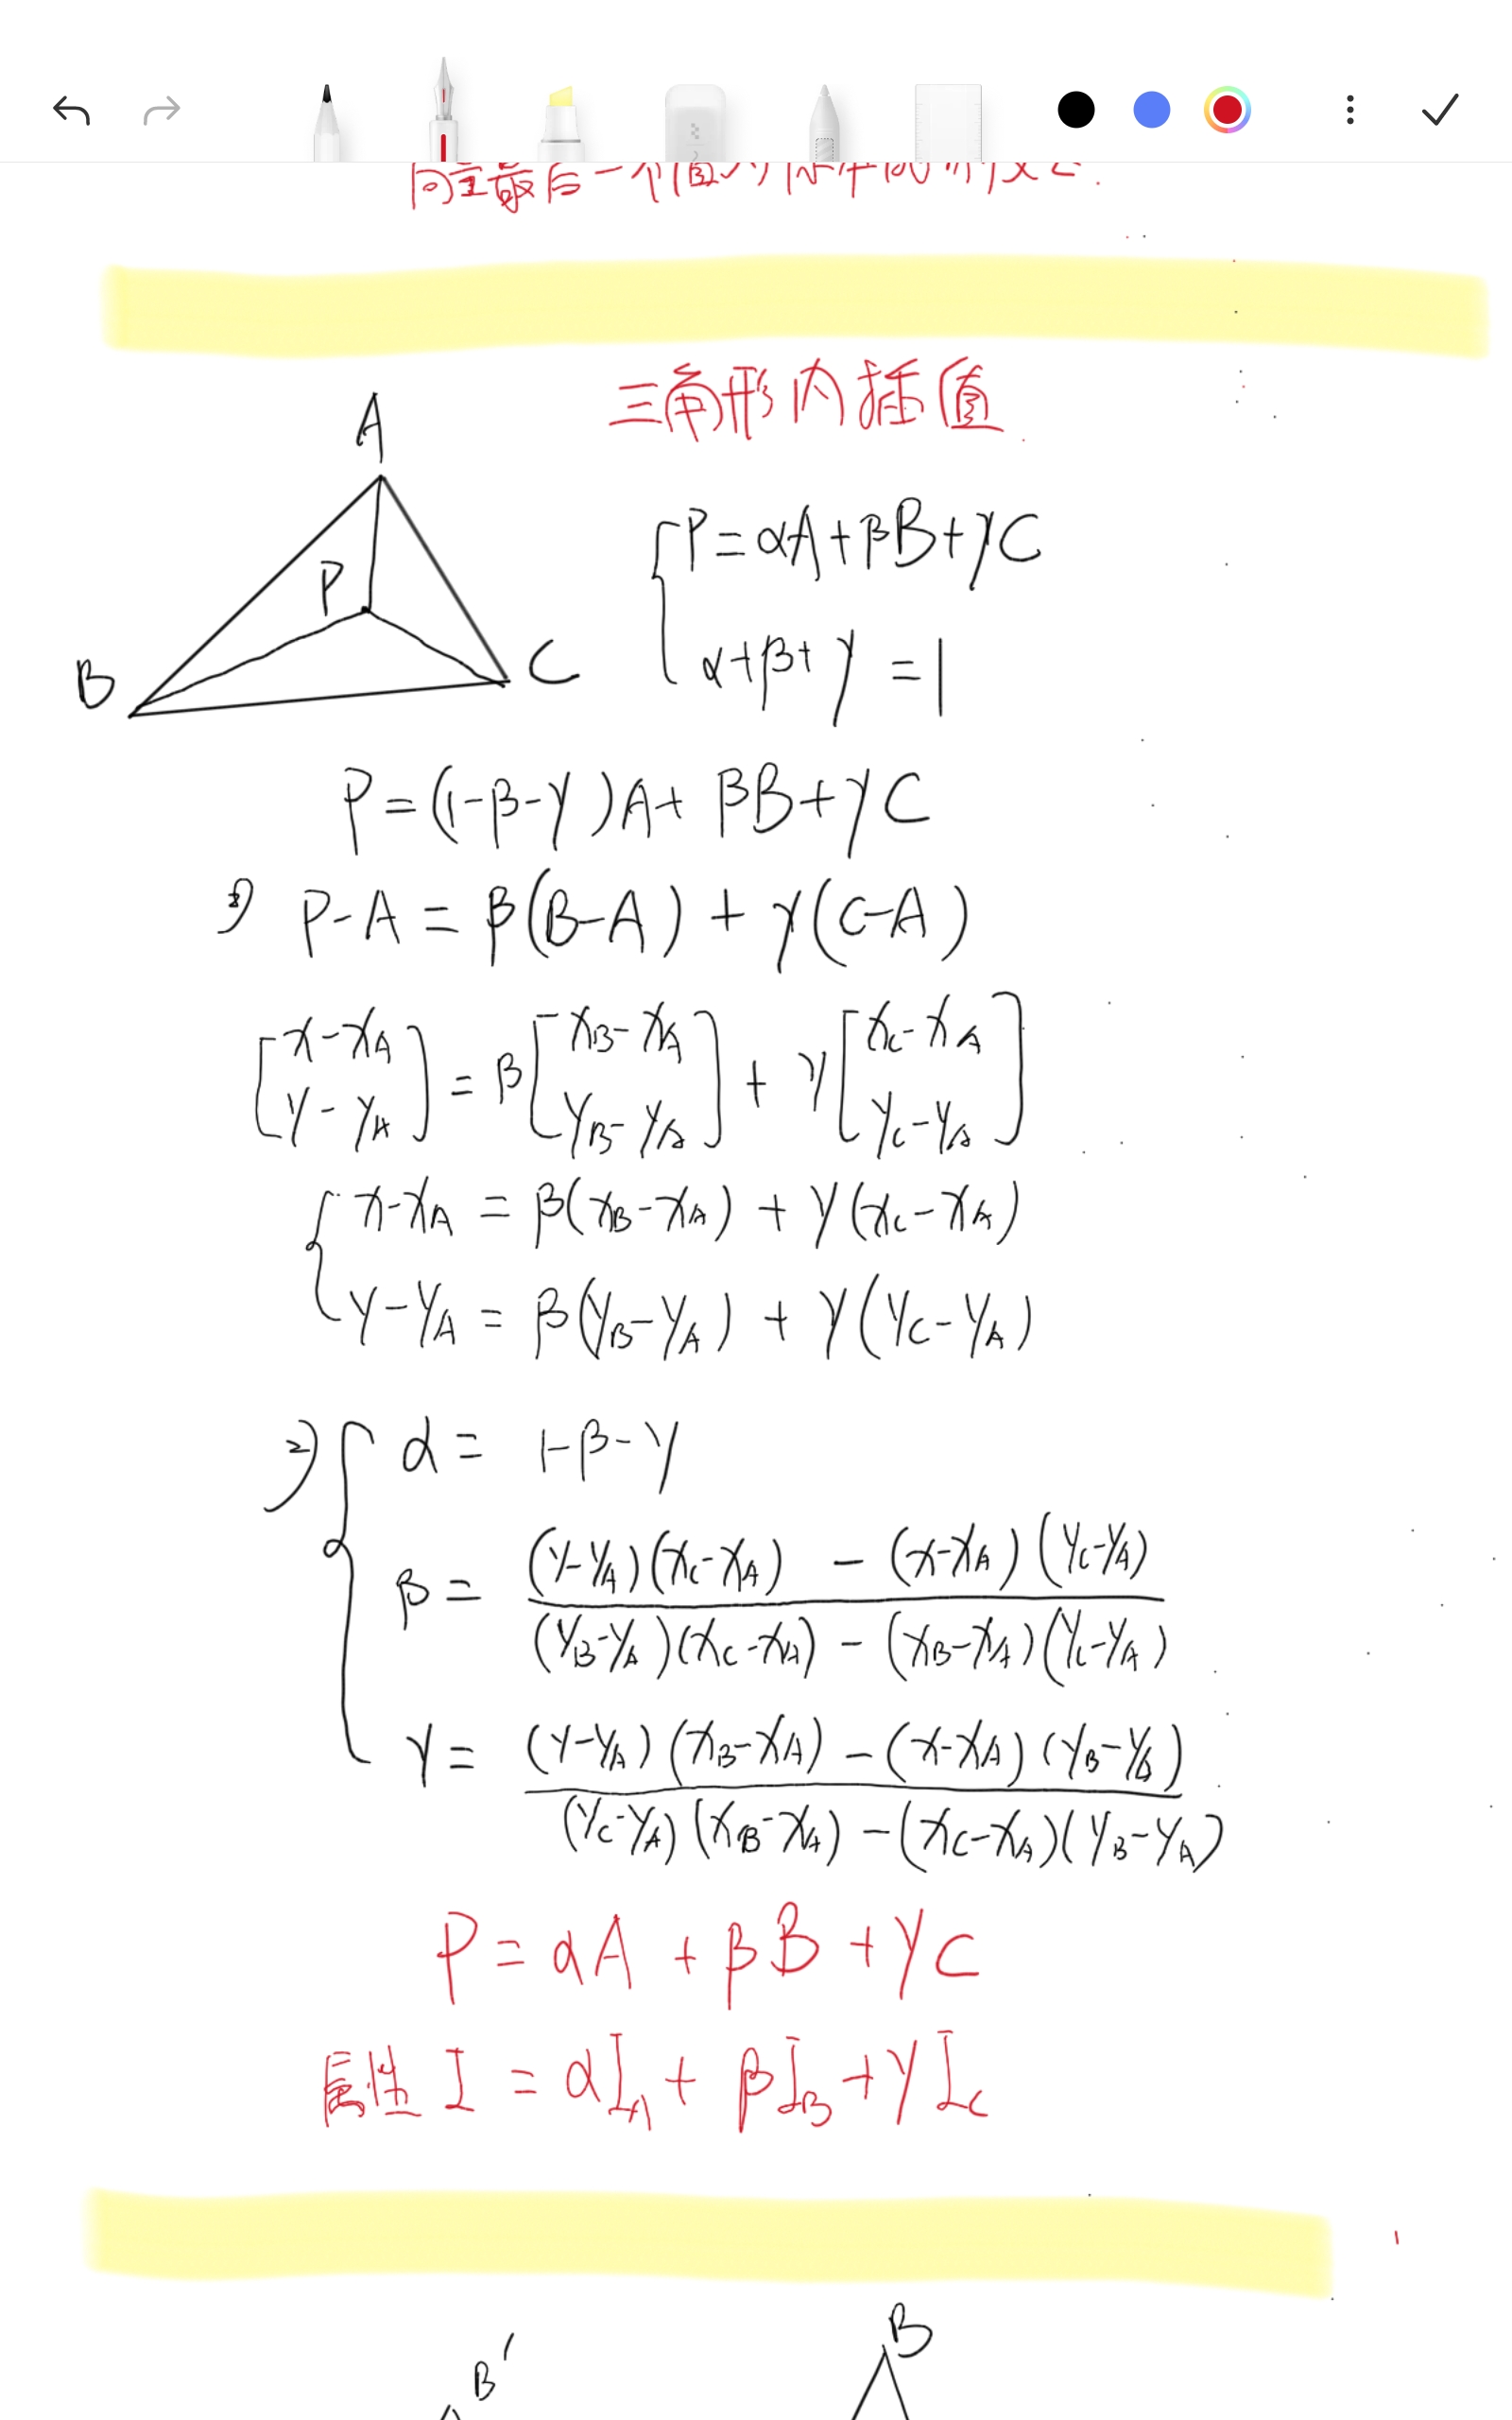 向量最后一个值
三角形内插值
A
P
B
C
P=αA+βB+γC
α+β+γ=1
P=(1-β-γ)A+βB+γC
P-A=β(B-A)+γ(C-A)
[x-xA] = β[xB-xA] + γ[xC-xA]
[y-yA] [yB-yA] [yC-yA]
x-xA = β(xB-xA) + γ(xC-xA)
y-yA = β(yB-yA) + γ(yC-yA)
2) α = 1-β-γ
β = (y-yA)(xC-xA) - (x-xA)(yC-yA)
(yB-yA)(xC-xA) - (xB-xA)(yC-yA)
γ = (y-yA)(xB-xA) - (x-xA)(yB-yA)
(yC-yA)(xB-xA) - (xC-xA)(yB-yA)
P = αA + βB + γC
属性 I = αIA + βIB + γIC
B'
B